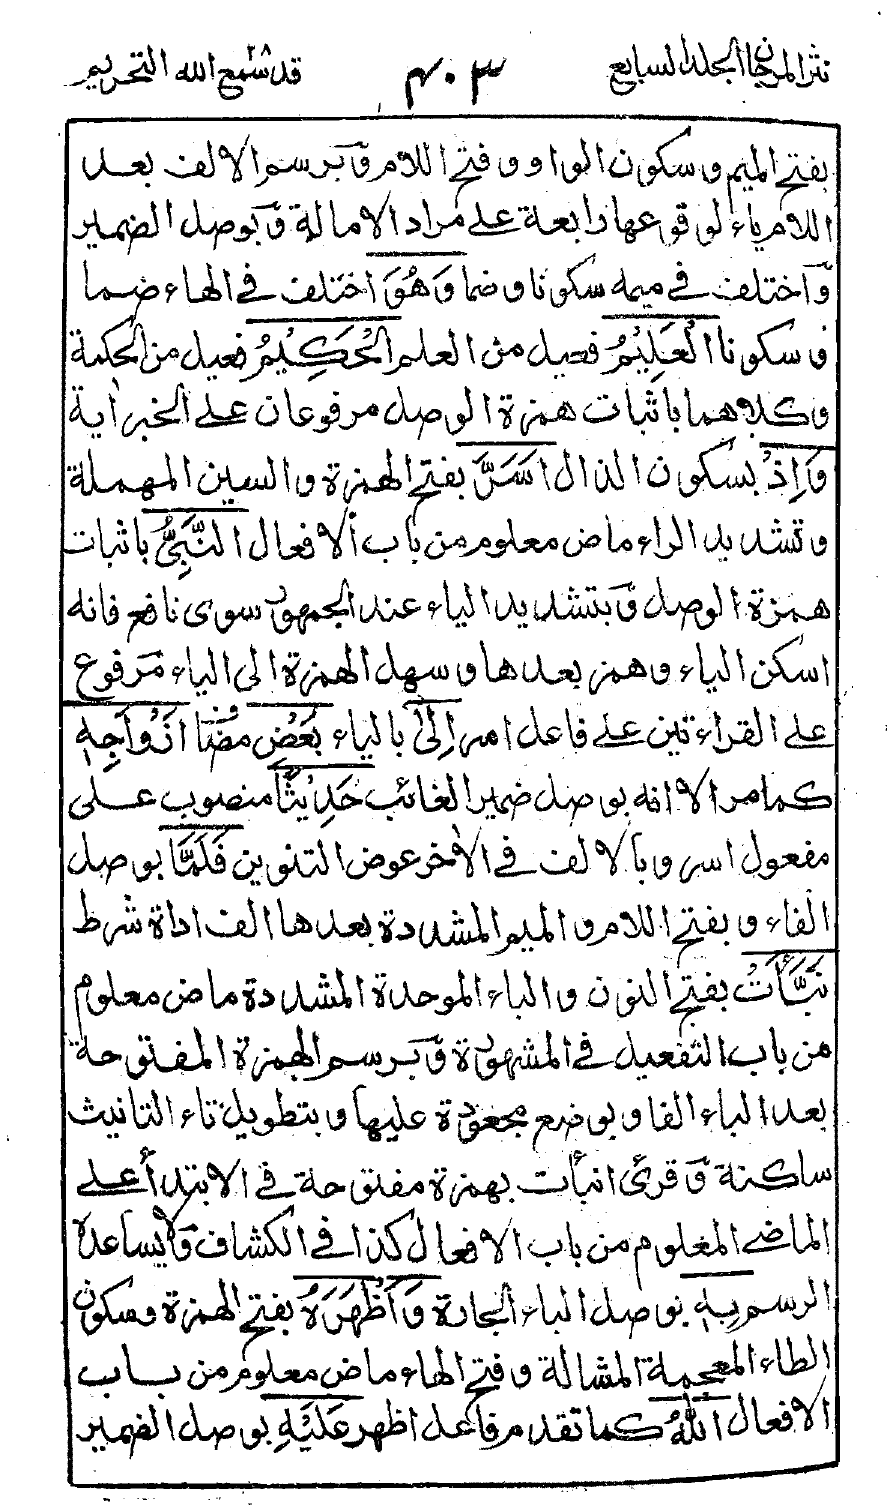 نثر المرجان الجلد السابع ٤٠٣ قد سمع الله ٢٨ التحريم
بفتح الميم و سكون الواو و فتح اللام وَبرسم الالف بعد
اللام ياء لوقوعها رابعة على مراد الامالة وَبوصل الضمير
وَاختلف فى ميمه سكونا و ضما وَهُوَ اختلف فى الهاء ضما
و سكونا الْعَلِيْمُ فعيل من العلم الْحَكِيْمُ فعيل من الحكمة
و كلاهما باثبات همزة الوصل مرفوعان على الخبر اٰية
وَاِذْ بسكون الذال اَسَرَّ بفتح الهمزة والسين المهملة
و تشديد الراء ماض معلوم من باب الافعال النَّبِىُّ باثبات
همزة الوصل وَبتشديد الياء عند الجمهور سوى نافع فانه
اسكن الياء و همز بعدها و سهل الهمزة الى الياء مَرفوع
على القراءتين على فاعل اسر اِلٰى بالياء بَعْضِ مضاف اَزْوَاجِهٖ
كما مر الا انه بوصل ضمير الغائب حَدِيْثًا منصوب على
مفعول اسر و بالالف فى الاخر عوض التنوين فَلَمَّا بوصل
الفاء و بفتح اللام و الميم المشددة بعدها الف اداة شرط
نَبَّأَتْ بفتح النون و الباء الموحدة المشددة ماض معلوم
من باب التفعيل فى المشهورة وَبرسم الهمزة المفتوحة
بعد الباء الفا و بوضع مجعودة عليها و بتطويل تاء التانيث
ساكنة وَقرئ انبأت بهمزة مفتوحة فى الابتداء على
الماضى المعلوم من باب الافعال كذا فى الكشاف وَلا يساعده
الرسم بِهٖ بوصل الباء الجارة وَاَظْهَرَهُ بفتح الهمزة و سكون
الظاء المعجمة المشالة و فتح الهاء ماض معلوم من باب
الافعال اللّٰهُ كما تقدم فاعل اظهر عَلَيْهِ بوصل الضمير